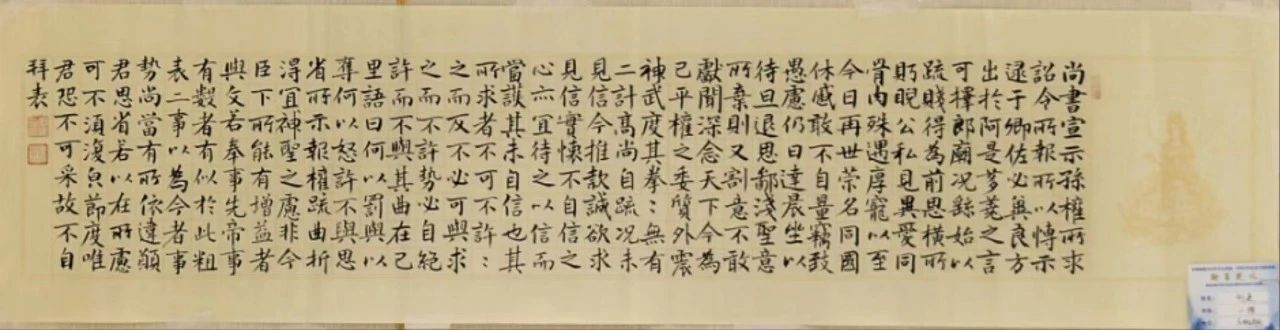 尚書宣示孫權所求
詔令所報所以博示
逮于卿佐必冀良方
出於阿是芻蕘之言
可擇郎廟况繇始以
疏賤得為前恩橫所
眄睨公私見異愛同
骨肉殊遇厚寵以至
今日再世榮名同國
休慼敢不自量竊致
愚慮仍日達晨坐以
待旦退思鄙淺聖意
所棄則又割意不敢
獻聞深念天下今為
已平權之委質外震
神武度其拳〻無有
二計高尚自疏况未
見信今推款誠欲求
見信實懷不自信之
心亦宜待之以信而
當護其未自信也其
所求者不可不許〻
之而反不必可與求
之而不許勢必自絕
許而不與其曲在己
里語曰何以罰與以
奪何以怒許不與思
省所示報權疏曲折
得宜神聖之慮非今
臣下所能有增益者
與文若奉事先帝事
有數者有似於此粗
表二事以為今者事
勢尚當有所依違顛
君思省若以在所慮
可不須復皃節度唯
君恐不可采故不自
拜表